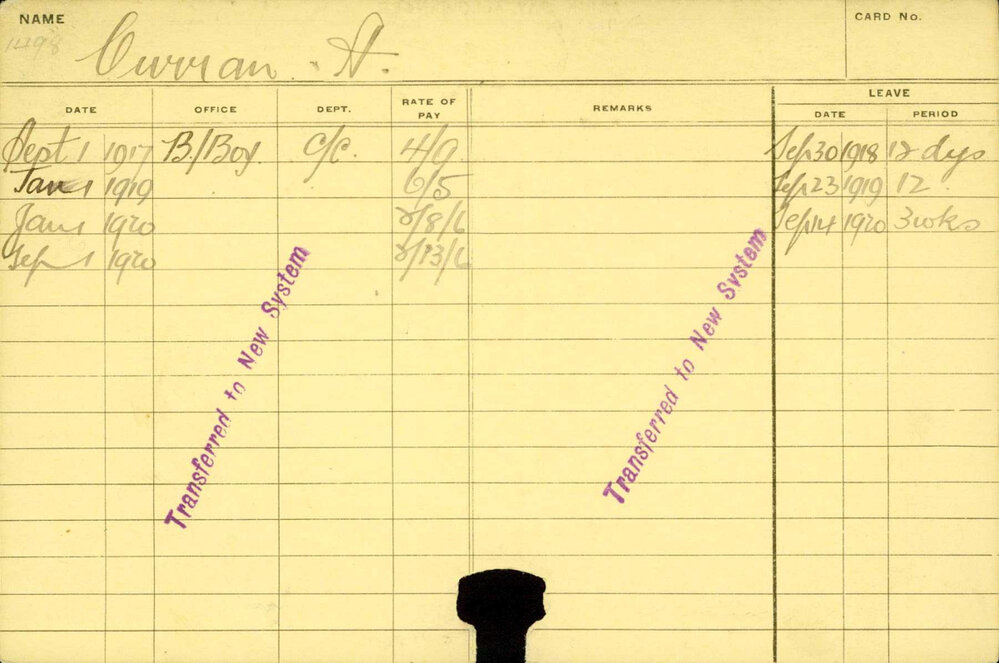 NAME
CARD No.
1498
Curran. A.
LEAVE
DATE OFFICE DEPT. RATE OF PAY REMARKS DATE PERIOD
Sept 1 1917 B/Boy. C/C. 4/9 Sep 30 1918 12 dys
Jan 1 1919 6/5 Sep 23 1919 12
Jan 1 1920 2/8/6 Sep 14 1920 3 wks
Sep 1 1920 2/13/6
Transferred to New System
Transferred to New System